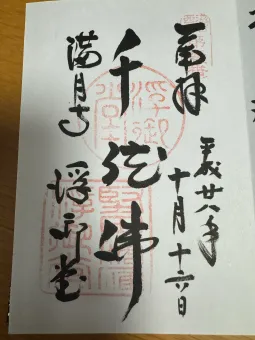 奉拝
平成廿八年
十月十六日
千體佛
満月寺
浮御堂